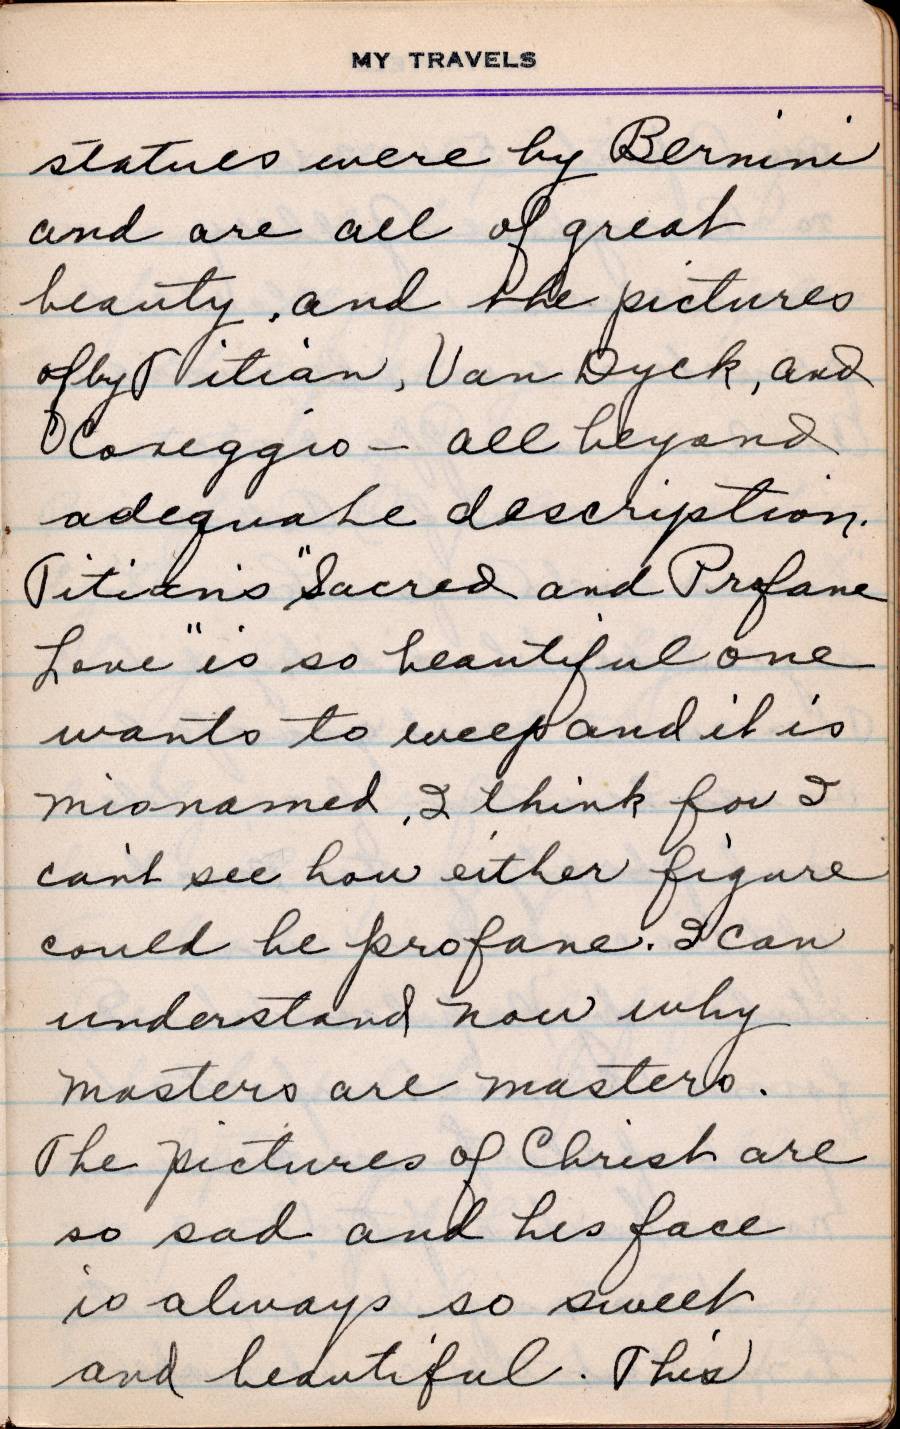 MY TRAVELS
statues were by Bernini
and are all of great
beauty, and the pictures
of by Titian, Van Dyck, and
Coreggio — all beyond
adequate description.
Titian's "Sacred and Profane
Love" is so beautiful one
wants to weep and it is
misnamed, I think for I
can't see how either figure
could be profane. I can
understand now why
masters are masters.
The pictures of Christ are
so sad and his face
is always so sweet
and beautiful. This